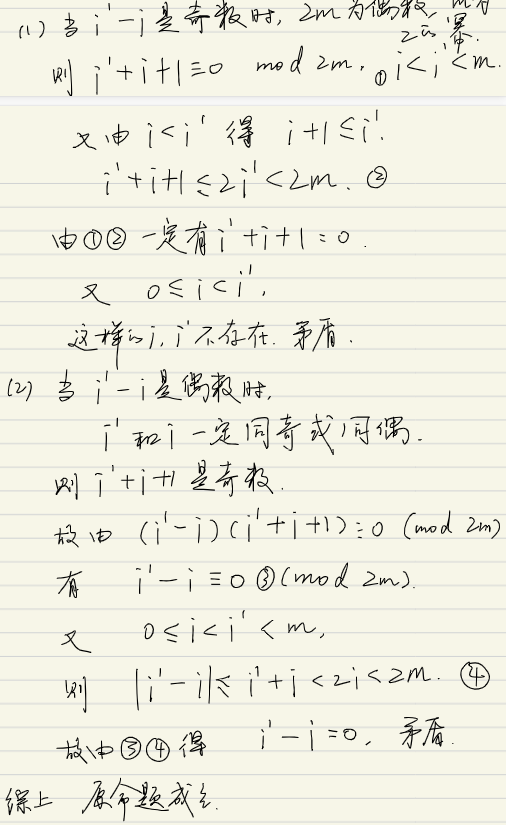 (1) 当 i'-i 是奇数时, 2m 为偶数, m为
2的幂.
则 i'+i+1≡0 mod 2m. ① i<i'<m.
又由 i<i' 得 i+1≤i'.
i'+i+1≤2i'<2m. ②
由①② 一定有 i'+i+1=0.
又 0≤i<i',
这样的i, i'不存在. 矛盾.
(2) 当 i'-i 是偶数时,
i' 和 i 一定同奇或同偶.
则 i'+i+1 是奇数.
故由 (i'-i)(i'+i+1)≡0 (mod 2m)
有 i'-i≡0 ③ (mod 2m).
又 0≤i<i'<m,
则 |i'-i|≤i'+i<2i<2m. ④
故由③④得 i'-i=0, 矛盾.
综上 原命题成立.